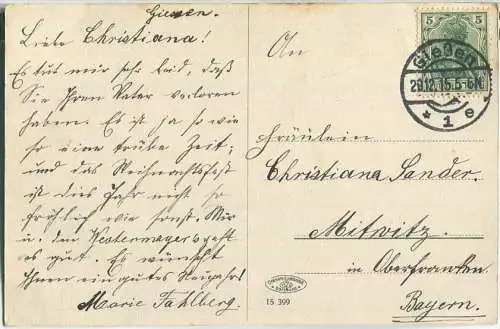 Giessen.
Liebe Christiana!
Es tut mir sehr leid, daß
Sie Ihren Vater verloren
haben. Es ist ja so wie
so eine trübe Zeit;
und das Weihnachtsfest
ist dies Jahr nicht so
fröhlich wie sonst. Mir
u. den Westermayers geht
es gut. Es wünscht
Ihnen ein gutes Neujahr!
Marie Fahlberg.
An
5 5
Gießen
29.12.15.5-6N.
* 1 e
Fräulein
Christiana Sander.
Mitwitz.
in Oberfranken.
Bayern.
15 399